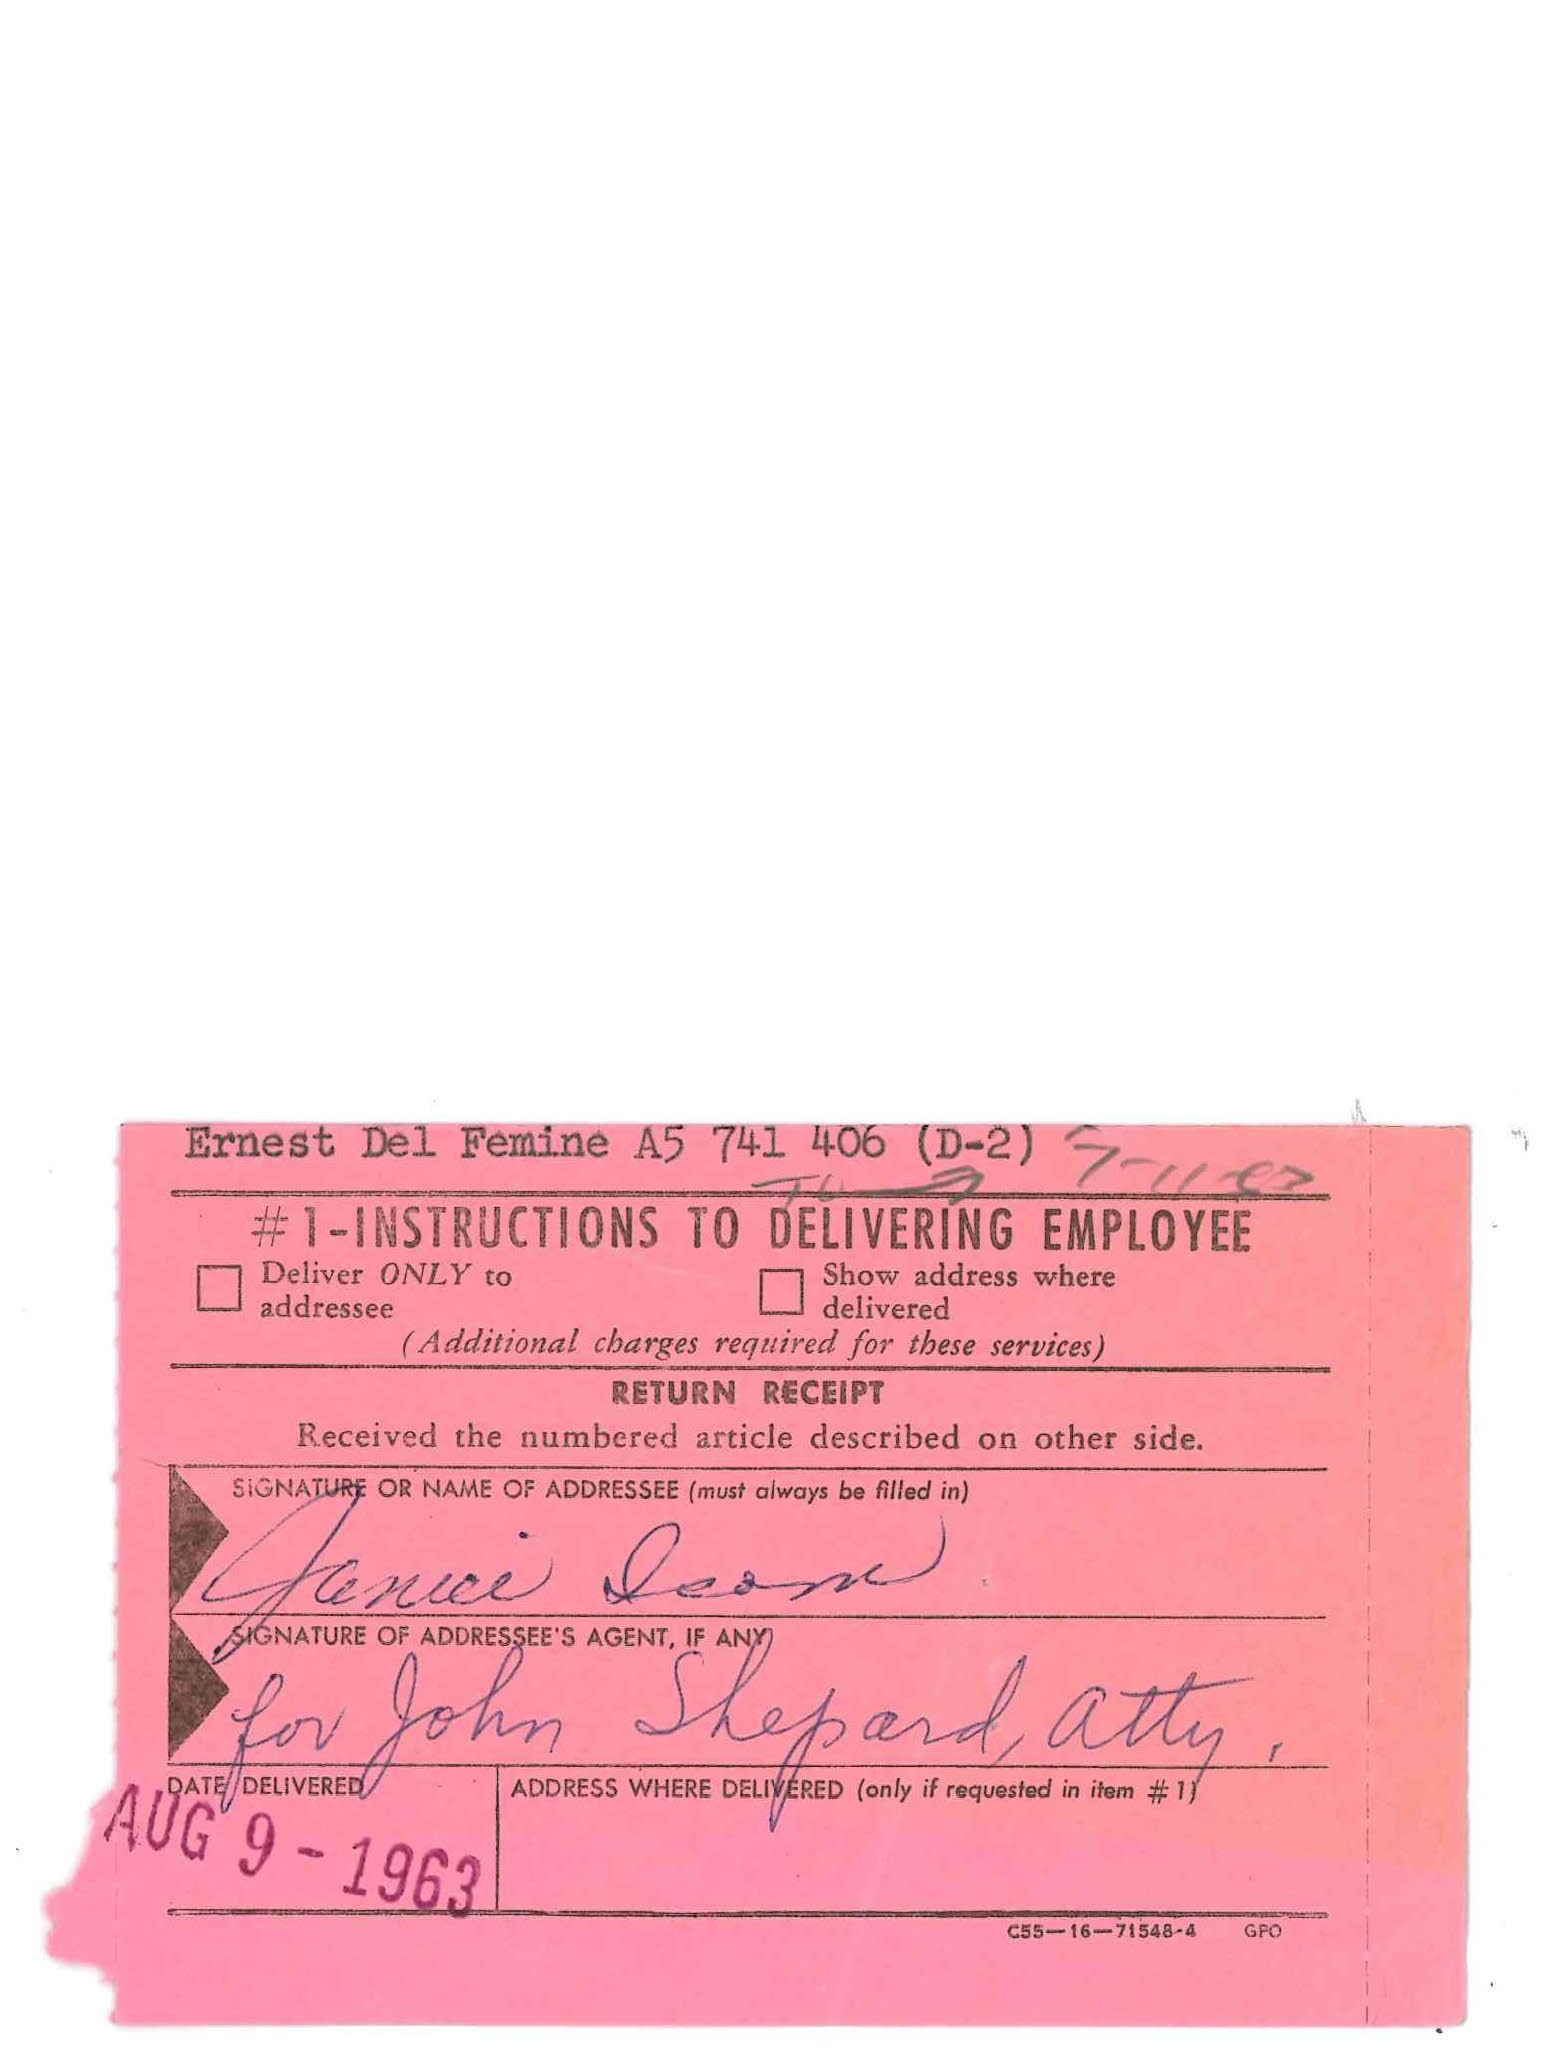 Ernest Del Femine A5 741 406 (D-2)
#1-INSTRUCTIONS TO DELIVERING EMPLOYEE
Deliver ONLY to addressee
Show address where delivered
(Additional charges required for these services)
RETURN RECEIPT
Received the numbered article described on other side.
SIGNATURE OR NAME OF ADDRESSEE (must always be filled in)
Janice Isom
SIGNATURE OF ADDRESSEE'S AGENT, IF ANY
for John Shepard, Atty.
DATE DELIVERED
ADDRESS WHERE DELIVERED (only if requested in item #1)
AUG 9 - 1963
C55—16—71548-4 GPO